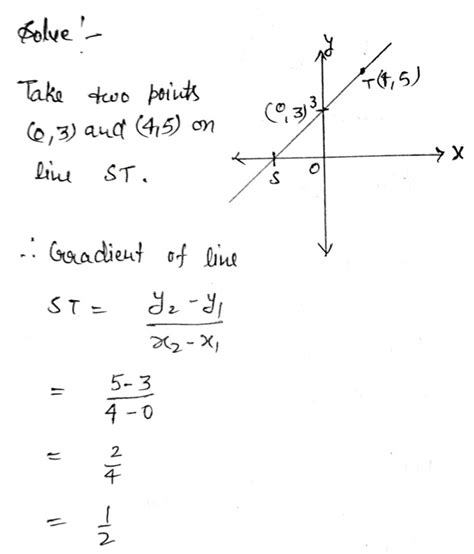 Solve :-
Take two points
(0,3) and (4,5) on
line ST.
y
T(4,5)
(0,3) 3
S
O
x
∴ Gradient of line
ST = y₂ - y₁ / x₂ - x₁
= 5-3 / 4-0
= 2/4
= 1/2